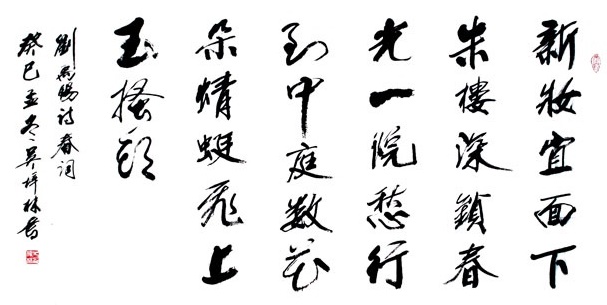 新妝宜面下
朱樓深鎖春
光一院愁行
到中庭数花
朵蜻蜓飛上
玉搔頭
劉禹錫詩春詞
癸巳孟冬吴梓林書